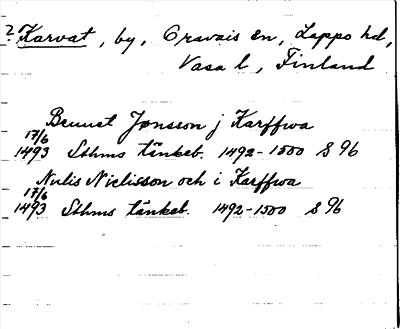 ? Karvat, by, Oravais sn, Lappo hd,
Vasa l, Finland
Bennet Jønsson j Karffwa
17/6
1493 Sthms tänkeb. 1492-1500 S 96
Nielis Nielisson och i Karffwa
17/6
1493 Sthms tänkeb. 1492-1500 S 96